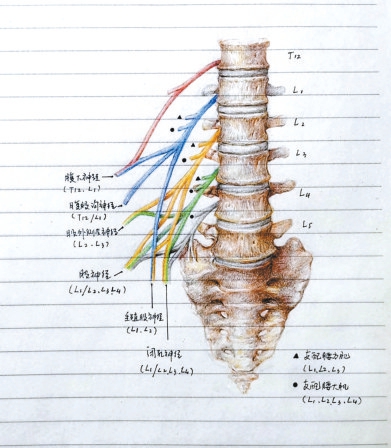 T12
L1
L2
L3
L4
L5
腹下神经
(T12、L1)
髂腹沟神经
(T12/L1)
股外侧皮神经
(L2、L3)
股神经
(L1/L2、L3、L4)
生殖股神经
(L1、L2)
闭孔神经
(L1/L2、L3、L4)
▲ 支配腰方肌
(L1、L2、L3)
● 支配腰大肌
(L1、L2、L3、L4)